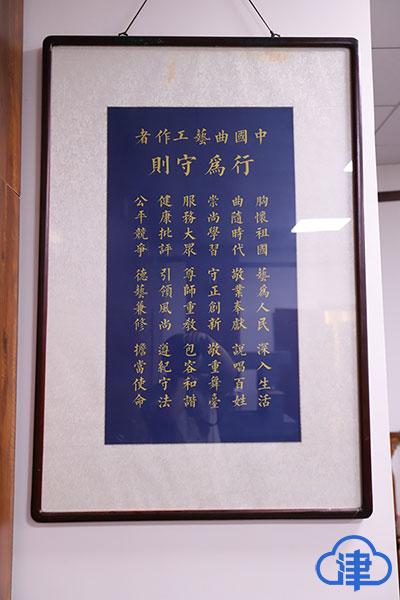 中國曲藝工作者
行為守則
胸懷祖國 藝為人民 深入生活
曲隨時代 敬業奉獻 說唱百姓
崇尚學習 守正創新 敬重舞臺
服務大眾 尊師重教 包容和諧
健康批評 引領風尚 遵紀守法
公平競爭 德藝兼修 擔當使命
津